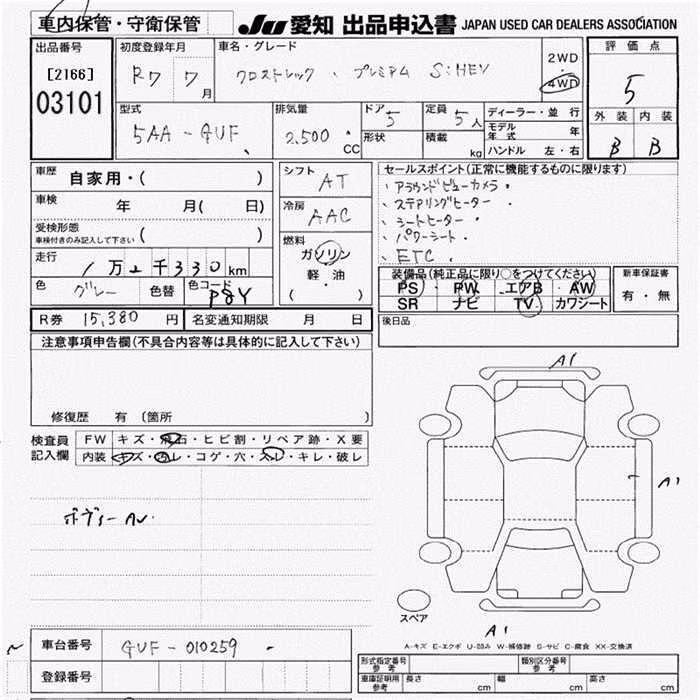 車内保管・守衛保管
JU 愛知 出品申込書 JAPAN USED CAR DEALERS ASSOCIATION
出品番号 初度登録年月 車名・グレード 評価点
[2166] R7 7月 クロストレック・プレミアム S:HEV 2WD 4WD 5
03101
型式 排気量 ドア 5 定員 5人 ディーラー・並行 外装 内装
5AA-GUF 2,500 CC 形状 積載 kg モデル年式 年 B B
ハンドル 左・右
車歴 自家用・( ) シフト AT セールスポイント(正常に機能するものに限ります)
・アラウンドビューカメラ
車検 年 月( 日) 冷房 AAC ・ステアリングヒーター
・シートヒーター
受検形態 ( ) ・パワーシート
車検付きのみ記入して下さい
燃料 ・ETC
走行 1万2千330km ガソリン 装備品(純正品に限り○をつけてください) 新車保証書
軽・油 PS PW エアB AW 有・無
色 グレー 色替 色コード P8Y ( ・ ) SR ナビ TV カワシート
R券 15,380円 名変通知期限 月 日 後日品
注意事項申告欄(不具合内容等は具体的に記入して下さい)
修復歴 有 (箇所 )
A1
検査員 FW キズ・飛石・ヒビ割・リペア跡・X要
記入欄 内装 キズ・汚レ・コゲ・穴・スレ・キレ・破レ
A1
ボディーAv.
スペア
A1
A-キズ E-エクボ U-凹み W-補修跡 S-サビ C-腐食 XX-交換済
車台番号 GUF-010259
登録番号
型式指定番号 参考 類別区分番号 参考
車庫証明用 参考 長さ cm 幅 cm 高さ cm